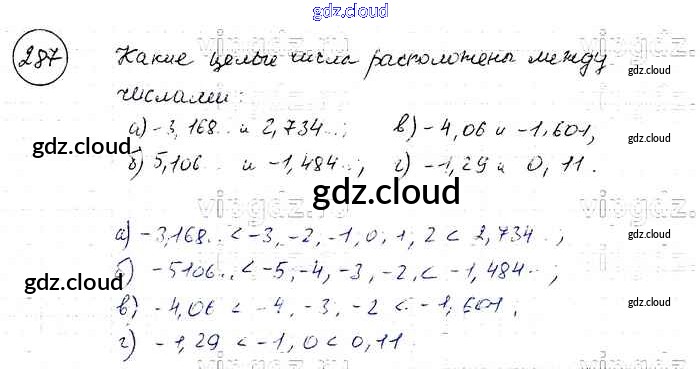 gdz.cloud
287 Какие целые числа расположены между
числами:
а) -3,168.. и 2,734..; в) -4,06 и -1,601,
б) 5,106.. и -1,484..; г) -1,29 и 0,11.
gdz.cloud
gdz.cloud
gdz.cloud
gdz.cloud
а) -3,168.. < -3, -2, -1, 0, 1, 2 < 2,734..;
б) -5106.. < -5, -4, -3, -2, < -1,484..;
в) -4,06 < -4, -3, -2 < -1,601,
г) -1,29 < -1, 0 < 0,11
gdz.cloud
gdz.cloud
gdz.cloud